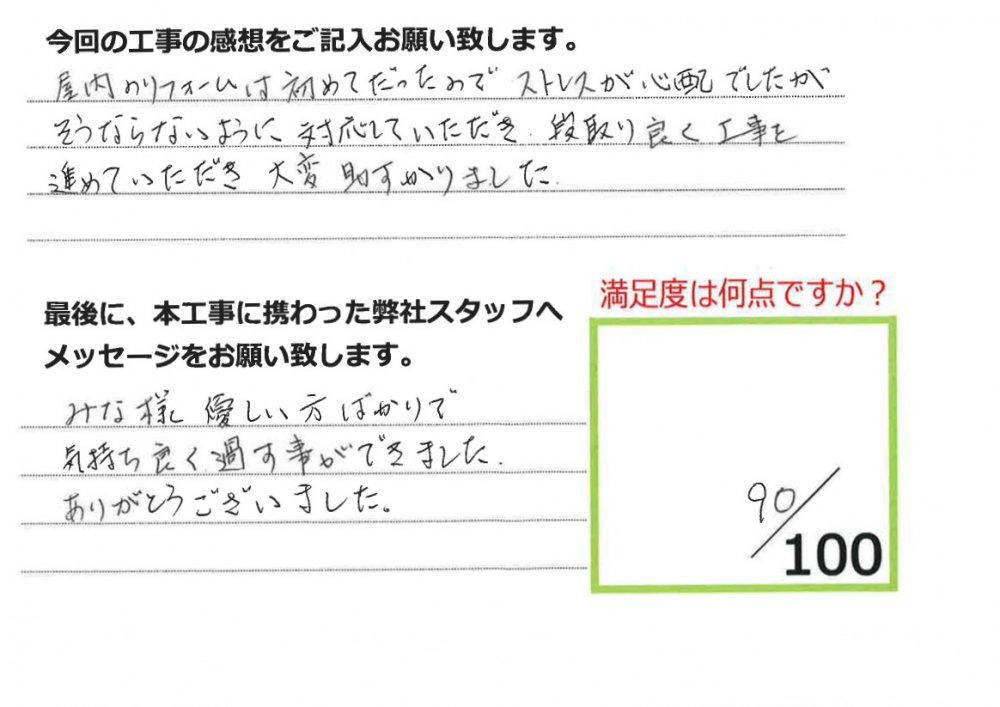 今回の工事の感想をご記入お願い致します。
屋内のリフォームは初めてだったのでストレスが心配でしたが
そうならないように対応していただき、段取り良く工事を
進めていただき大変助すかりました。
最後に、本工事に携わった弊社スタッフへ
メッセージをお願い致します。
みな様優しい方ばかりで
気持ち良く過す事ができました。
ありがとうございました。
満足度は何点ですか？
90/100